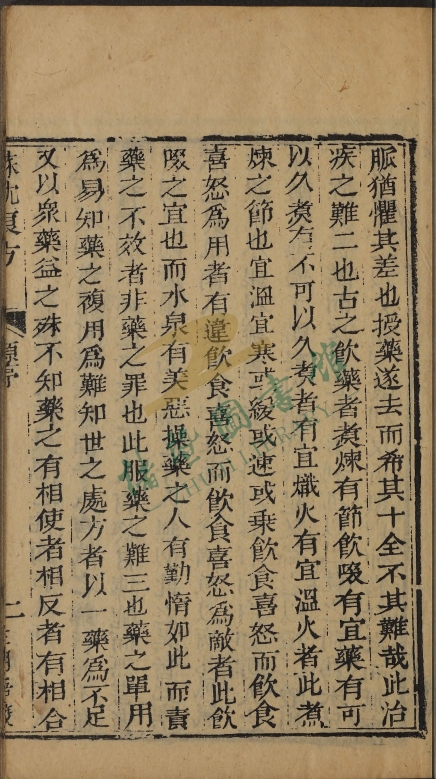 脈猶懼其差也授藥遂去而希其十全不其難哉此治
疾之難二也古之飲藥者煑煉有節飲啜有宜藥有可
以久煑有不可以久煑者有宜熾火有宜溫火者此煮
煉之節也宜溫宜寒或緩或速或乗飲食喜怒而飲食
喜怒為用者有違飲食喜怒而飲食喜怒為敵者此飲
啜之宜也而水泉有美惡操藥之人有勤惰如此而責
藥之不效者非藥之罪也此服藥之難三也藥之單用
為易知藥之複用為難知世之處方者以一藥為不足
又以衆藥益之殊不知藥之有相使者相反者有相合
蘇沈良方 原序 二